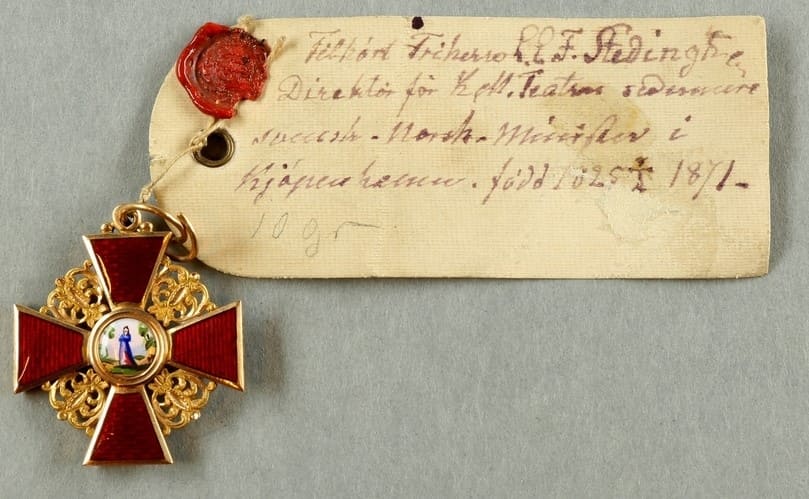 Tillhört Friherre E. F. Stedingk,
Direktör för K. M. Teatrar sedermera
svensk-Norsk-Minister i
Kjöpenhamn. född 1825 † 1871-
10 gr